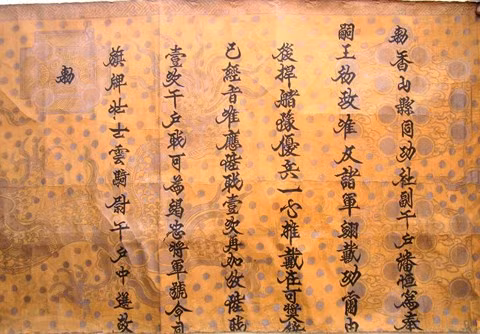 敕香山縣同功社副千戶潘恒為奉
嗣王初政准及諸軍翊戴功
後捍豬隊優兵一心推戴在可獎
已經旨准應陞職壹次再加敘陞職
壹次千戶職可為竭忠將軍號令司
旗牌壯士雲騎尉千戶中選故
敕